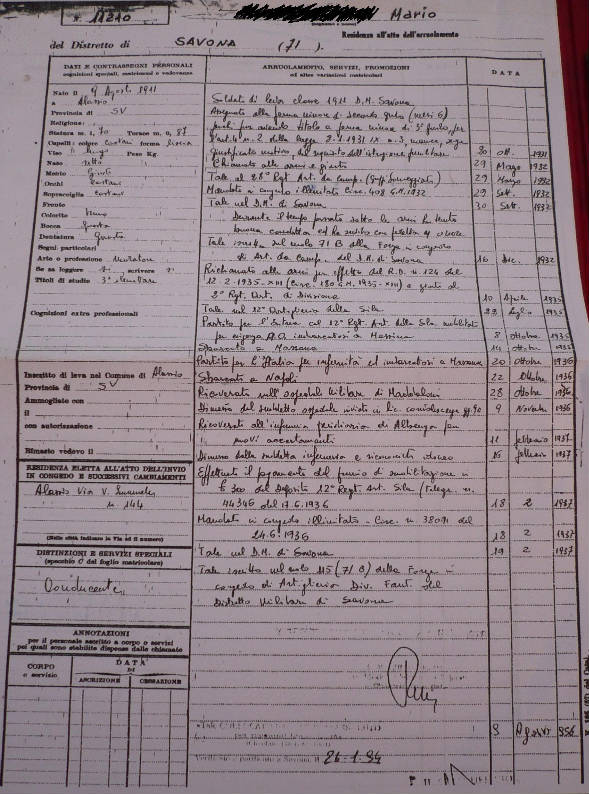 N. 11210 Mario
Residenza all'atto dell'arruolamento
del Distretto di SAVONA (71).
DATI E CONTRASSEGNI PERSONALI
cognizioni speciali, matrimoni e vedovanze
ARRUOLAMENTO, SERVIZI, PROMOZIONI
ed altre variazioni matricolari
DATA
Nato il 9 Agosto 1911
a Alassio
Provincia di SV
Religione:
Statura m. 1, 70 Torace m. 0, 87
Capelli: colore castani forma liscia
Viso lungo Peso Kg.
Naso retto
Mento giusto
Occhi castani
Sopracciglia castani
Fronte
Colorito bruno
Bocca giusta
Dentatura guasta
Segni particolari
Arte o professione Muratore
Se sa leggere si scrivere si
Titoli di studio 3ª elementare
Cognizioni extra professionali
Inscritto di leva nel Comune di Alassio
Provincia di SV
Ammogliato con
il
con autorizzazione
Rimasto vedovo il
RESIDENZA ELETTA ALL'ATTO DELL'INVIO
IN CONGEDO E SUCCESSIVI CAMBIAMENTI
Alassio Via V. Emanuele
n. 144
(Nelle città indicare la Via ed il numero)
DISTINZIONI E SERVIZI SPECIALI
(specchio C del foglio matricolare)
Conducente
ANNOTAZIONI
per il personale ascritto a corpo o servizi
pei quali sono stabilite dispense dalle chiamate
CORPO
o servizio
DATA
DI
ASCRIZIONE CESSAZIONE
Soldato di leva classe 1911 D.M. Savona
Assegnato alla ferma minore di secondo grado (mesi 6)
perché pur avendo titolo a ferma minore di 3º grado, per
l'art. 4 n. 2 della legge 2.1.1931 IX n. 3, manca, senza
giustificato motivo, del requisito dell'istruzione premilitare 30 ott. 1931
Chiamato alle armi e giunto 29 Marzo 1932
Tale al 28º Rgt Art. da Camp. (Someggiato) 29 Marzo 1932
Mandato in congedo illimitato Circ. 408 G.M. 1932 29 Sett. 1932
Tale nel D.M. di Savona 30 Sett. 1932
Durante il tempo passato sotto le armi ha tenuto
buona condotta ed ha servito con fedeltà ed onore
Tale inscritto nel ruolo 71 B della Forza in congedo
di Art. da Camp. del D.M. di Savona 16 Dic. 1932
Richiamato alle armi per effetto del R.D. n. 126 del
12.2.1935-XIII (Circ. 180 G.M. 1935-XIII) e giunto al
2º Rgt. Art. di Divisione 10 Aprile 1935
Tale nel 12º Artiglieria della Sila 23 luglio 1935
Partito per l'Eritrea col 12º Rgt. Art. della Sila mobilitato
per esigenza A.O. imbarcatosi a Messina 8 ottobre 1935
Sbarcato a Massaua 14 ottobre 1935
Partito per l'Italia per infermità ed imbarcatosi a Massaua 20 ottobre 1936
Sbarcato a Napoli 22 ottobre 1936
Ricoverato nell'ospedale Militare di Maddaloni 28 ottobre 1936
Dimesso dal suddetto ospedale inviato in lic. convalescenza gg. 90 9 Novembre 1936
Ricoverato all'infermeria presidiaria di Albenga per
nuovi accertamenti 11 febbraio 1937
Dimesso dalla suddetta infermeria e riconosciuto idoneo 16 febbraio 1937
Effettuato il pagamento del premio di smobilitazione in
£ 300 dal Deposito 12º Regt. Art. Sila (Telegr. n.
44346 del 17.6.1936) 18 2 1937
Mandato in congedo illimitato. Circ. n. 38091 del
24.6.1936 18 2 1937
Tale nel D.M. di Savona 19 2 1937
Tale inscritto nel ruolo 115 (71 B) della Forza in
congedo di Artiglieria Div. Fant. del
Distretto Militare di Savona
9 Agosto 956
Verificato e parificato a Savona, il 26-1-94